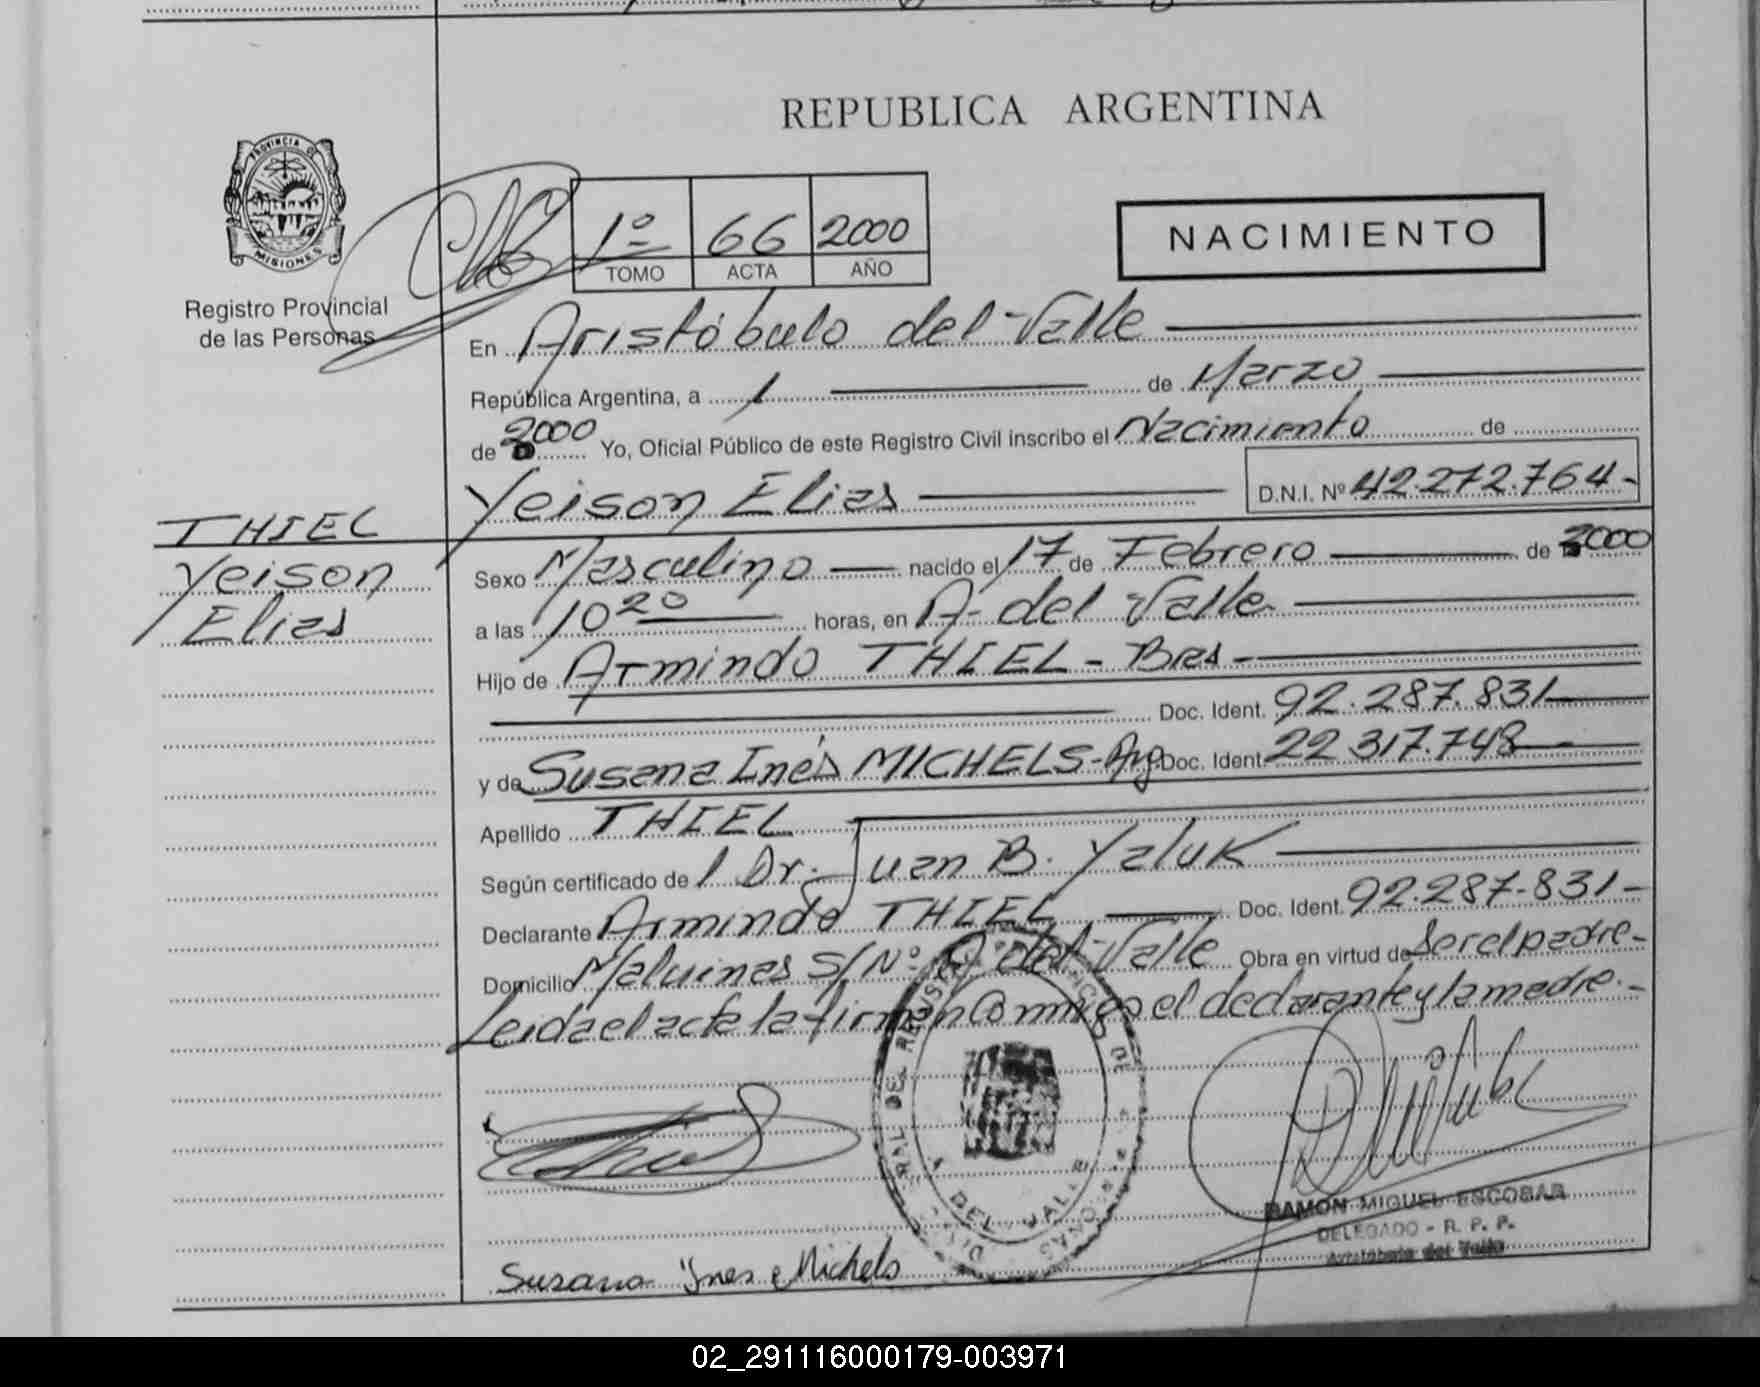 REPUBLICA ARGENTINA
PROVINCIA DE
MISIONES
Registro Provincial
de las Personas
1º 66 2000
TOMO ACTA AÑO
NACIMIENTO
En Aristóbulo del Valle
República Argentina, a 1 de Marzo
de 2000 Yo, Oficial Público de este Registro Civil inscribo el Nacimiento de
Yeison Elias D.N.I. Nº 42.272.764-
THIEL
Yeison
Elias
Sexo Masculino nacido el 17 de Febrero de 2000
a las 10 20 horas, en A. del Valle
Hijo de Armindo THIEL - Bras -
Doc. Ident. 92.287.831
y de Susana Inés MICHELS - Arg Doc. Ident. 22.317.748
Apellido THIEL
Según certificado de l Dr. Juan B. Yaluk
Declarante Armindo THIEL Doc. Ident. 92.287.831-
Domicilio Malvinas S/Nº A. del Valle Obra en virtud de Ser el padre-
Leida el acta la firman Conmigo el declarante y la madre.-
DEL VALLE
Susana Ines Michels
RAMON MIGUEL ESCOBAR
DELEGADO - R. P. P.
Aristóbulo del Valle
02_291116000179-003971